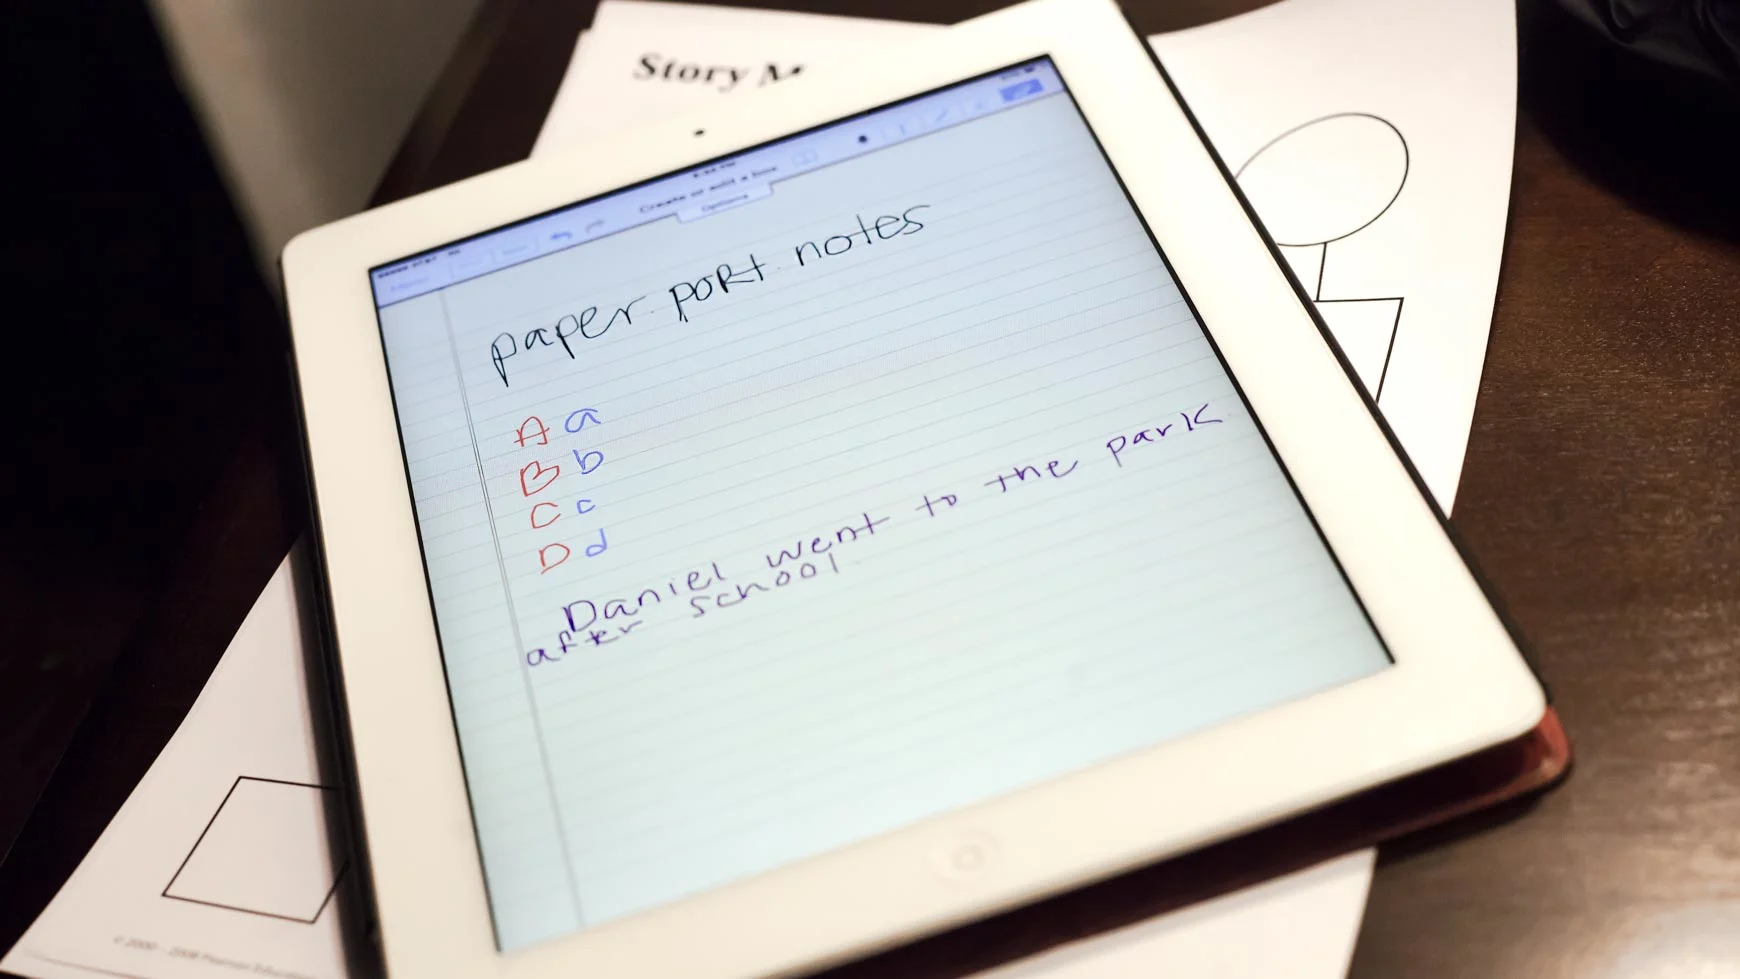 Story
Create or edit a box
Options
paper port notes
A a
B b
C c
D d
Daniel went to the park
after school.
© 2000 - 2008 Pearson Education